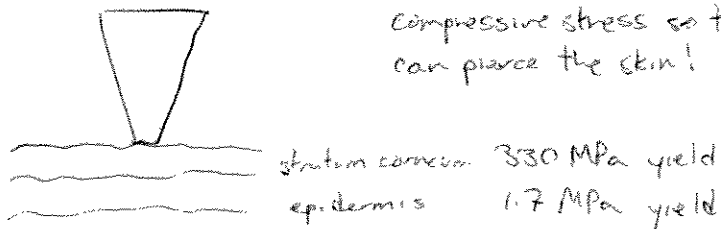 compressive stress so
can pierce the skin!
stratum corneum 330 MPa yield
epidermis 1.7 MPa yield